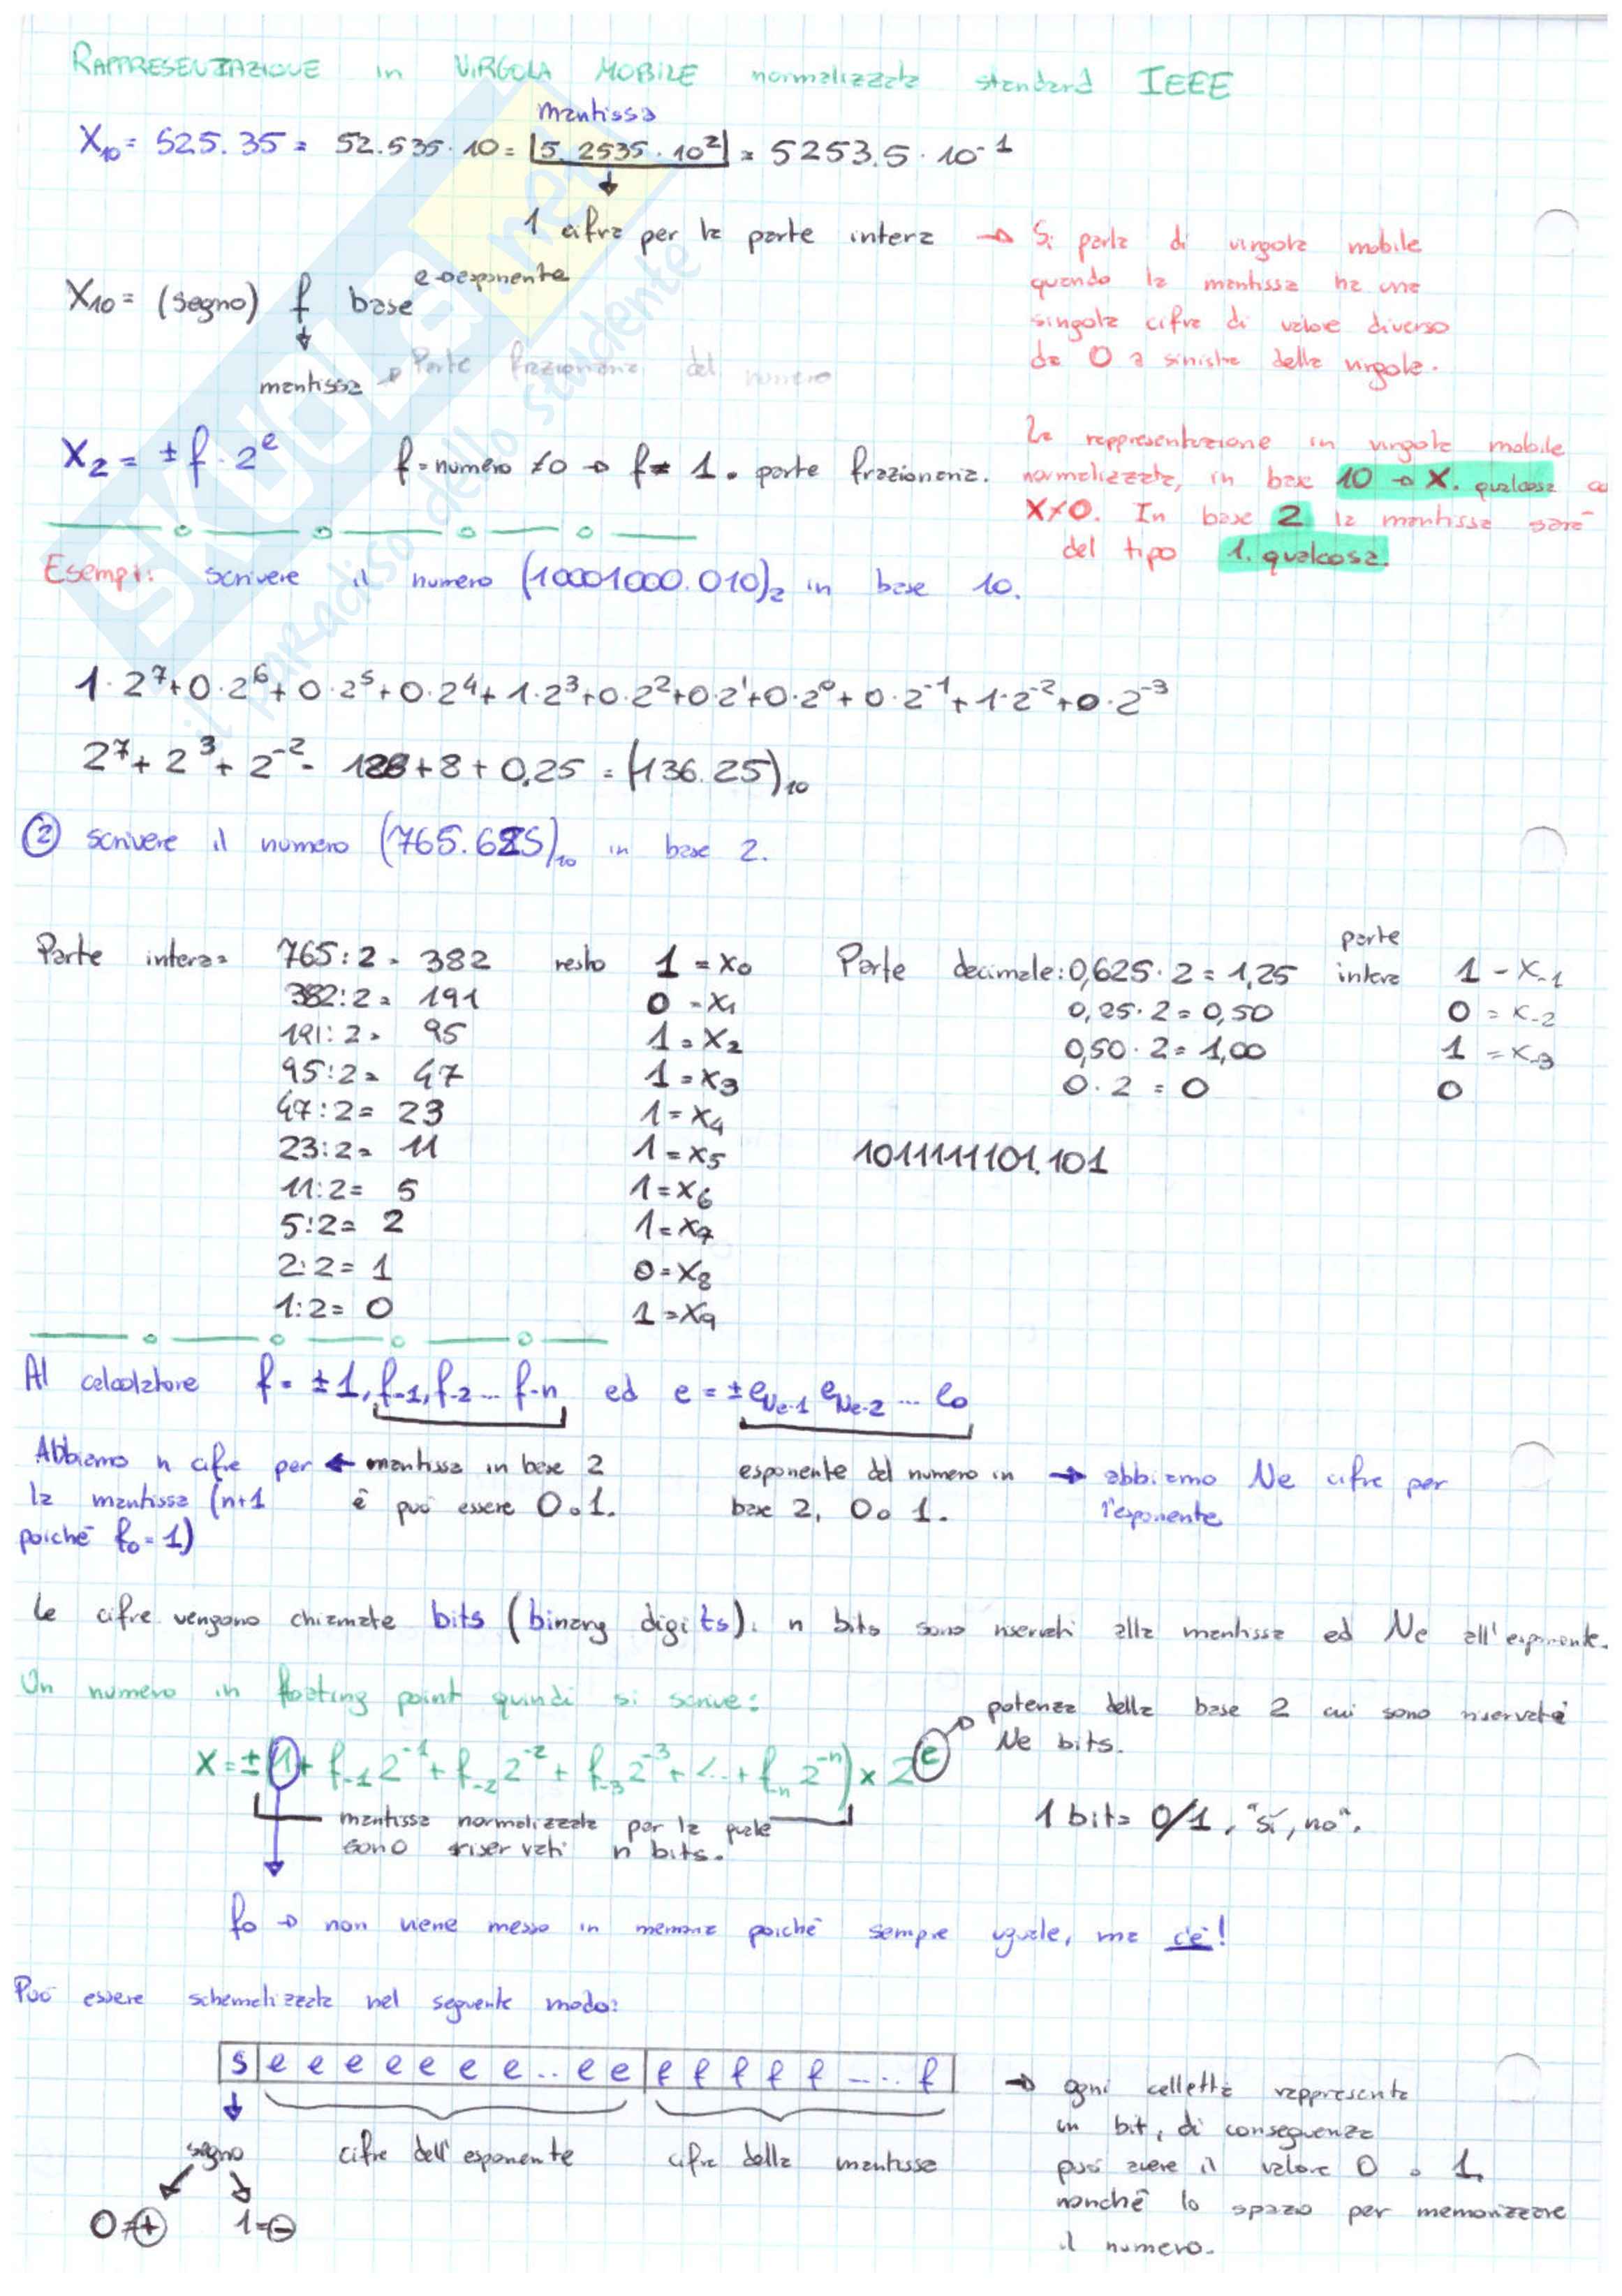 RAPPRESENTAZIONE in VIRGOLA MOBILE normalizzata standard IEEE
mantissa
X₁₀ = 525.35 = 52.535 · 10 = 5.2535 · 10² = 5253.5 · 10⁻¹
1 cifra per la parte intera → Si parla di virgola mobile
quando la mantissa ha una
singola cifra di valore diverso
da 0 a sinistra della virgola.
X₁₀ = (segno) f base e → esponente
mantissa → Parte frazionaria del numero
X₂ = ± f · 2ᵉ f = numero ≠0 → f = 1. parte frazionaria.
La rappresentazione in virgola mobile
normalizzata, in base 10 → X. qualcosa co
X≠0. In base 2 la mantissa sarà
del tipo 1. qualcosa.
Esempi: scrivere il numero (10001000.010)₂ in base 10.
1·2⁷+0·2⁶+0·2⁵+0·2⁴+1·2³+0·2²+0·2¹+0·2⁰+0·2⁻¹+1·2⁻²+0·2⁻³
2⁷+2³+2⁻² = 128+8+0,25 = (136.25)₁₀
② scrivere il numero (765.625)₁₀ in base 2.
Parte intera= 765:2 = 382 resto 1 = x₀
382:2 = 191 0 = x₁
191:2 = 95 1 = x₂
95:2 = 47 1 = x₃
47:2 = 23 1 = x₄
23:2 = 11 1 = x₅
11:2 = 5 1 = x₆
5:2 = 2 1 = x₇
2:2 = 1 0 = x₈
1:2 = 0 1 = x₉
Parte decimale: 0,625·2 = 1,25 parte intera 1 = x₋₁
0,25·2 = 0,50 0 = x₋₂
0,50·2 = 1,00 1 = x₋₃
0·2 = 0 0
1011111101.101
Al calcolatore f = ±1, f₋₁, f₋₂ ... f₋n ed e = ± e_Ne-1 e_Ne-2 ... e₀
Abbiamo n cifre per ← mantissa in base 2
la mantissa (n+1 e può essere 0 o 1.
poiché f₀ = 1)
esponente del numero in → abbiamo Ne cifre per
base 2, 0 o 1. l'esponente
Le cifre vengono chiamate bits (binary digits). n bits sono riservati alla mantissa ed Ne all'esponente.
Un numero in floating point quindi si scrive:
X = ±(1 + f₋₁ 2⁻¹ + f₋₂ 2⁻² + f₋₃ 2⁻³ + ... + f₋n 2⁻ⁿ) × 2ᵉ
potenza della base 2 cui sono riservate
Ne bits.
mantissa normalizzata per la quale
sono riservati n bits.
1 bit = 0/1, "sì, no".
f₀ → non viene messo in memoria poiché sempre uguale, ma c'è!
Può essere schematizzata nel seguente modo:
s e e e e e e e .. e e f f f f f .... f
segno
cifre dell'esponente
cifre della mantissa
0=+ 1=−
→ ogni celletta rappresenta
un bit, di conseguenza
può avere il valore 0 o 1,
nonché lo spazio per memorizzare
il numero.
SKUOLA.net
il paradiso dello studente